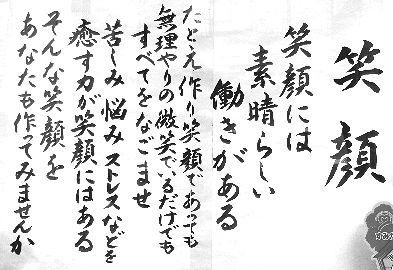 笑顔
笑顔には
素晴らしい
働きがある
たとえ作り笑顔であっても
無理やりの微笑でいるだけでも
すべてをなごませ
苦しみ悩みストレスなどを
癒す力が笑顔にはある
そんな笑顔を
あなたも作ってみませんか